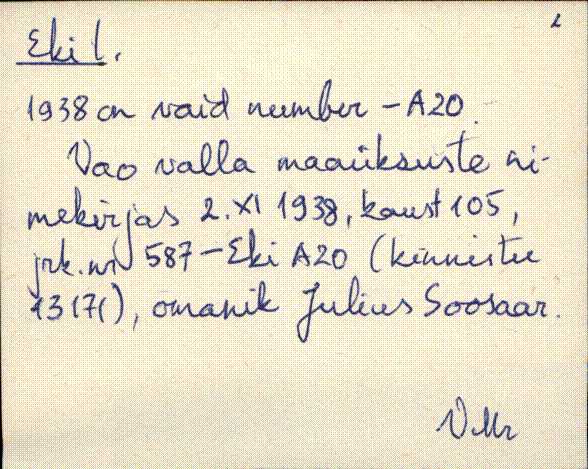 Eki t.
1938 on vaid number – A20.
Vao valla maaüksuste ni-
mekirjas 2.XI 1938, kaust 105,
jrk.nr 587 – Eki A20 (kinnistu
omanik Julius Soosaar.
V.Mr